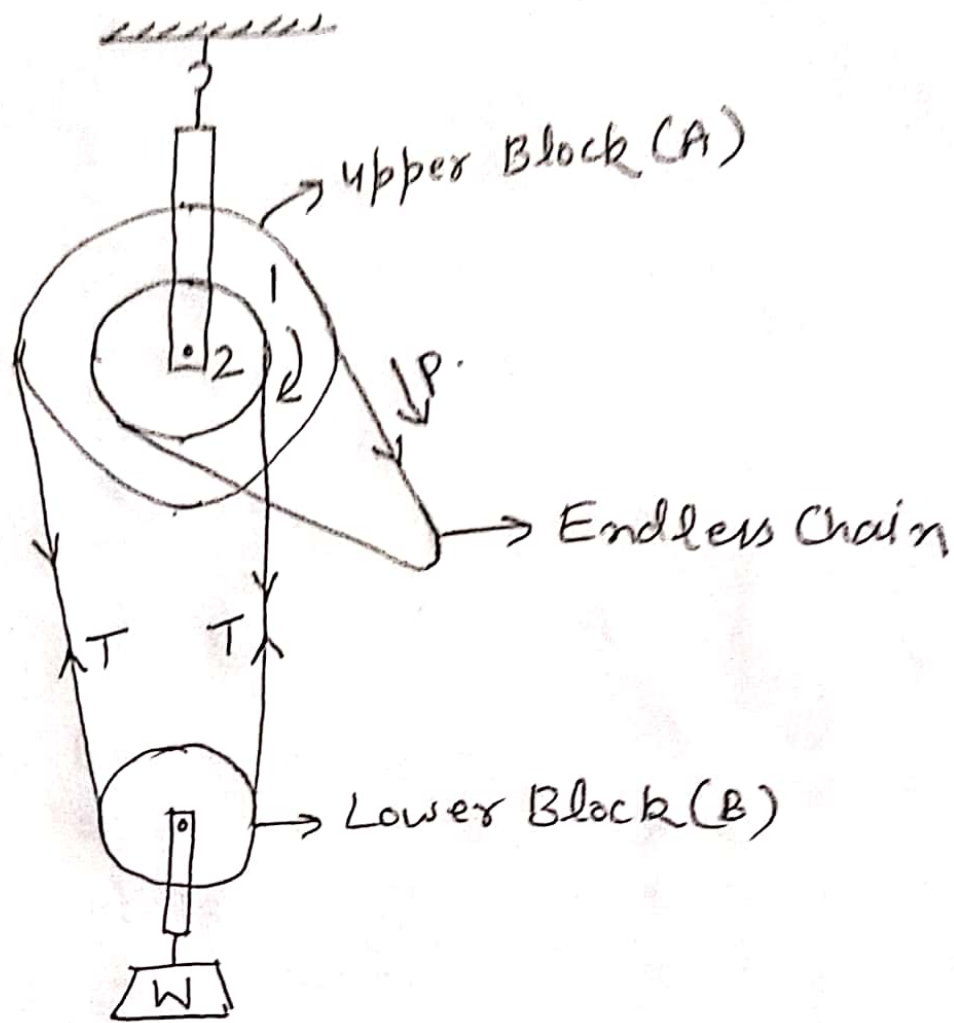 Upper Block (A)
1
2
P.
Endless Chain
T
T
Lower Block (B)
W